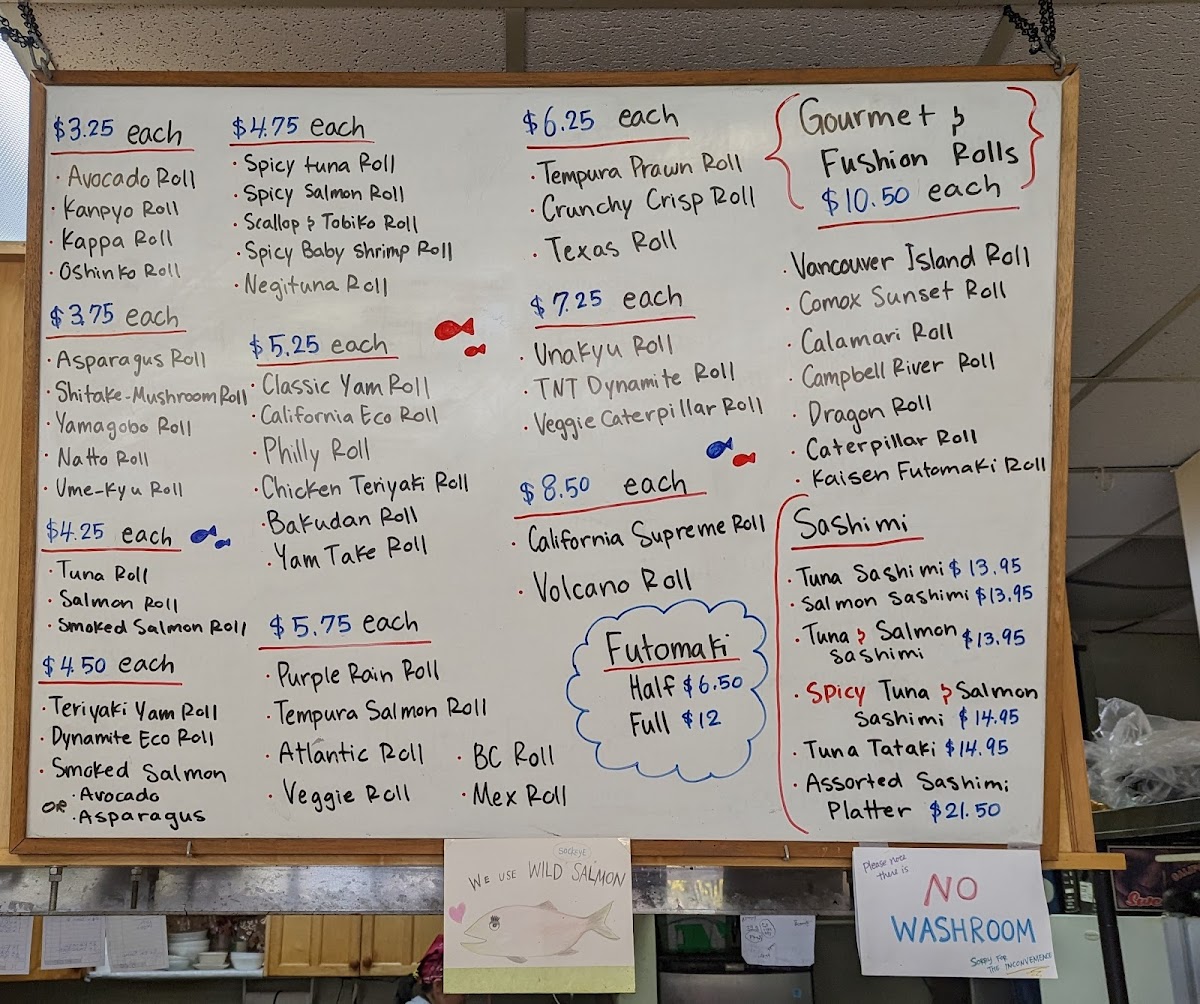 $3.25 each
· Avocado Roll
· Kanpyo Roll
· Kappa Roll
· Oshinko Roll
$3.75 each
· Asparagus Roll
· Shitake-Mushroom Roll
· Yamagobo Roll
· Natto Roll
· Ume-Kyu Roll
$4.25 each
· Tuna Roll
· Salmon Roll
· Smoked Salmon Roll
$4.50 each
· Teriyaki Yam Roll
· Dynamite Eco Roll
· Smoked Salmon
· Avocado
OR · Asparagus
$4.75 each
· Spicy tuna Roll
· Spicy Salmon Roll
· Scallop & Tobiko Roll
· Spicy Baby Shrimp Roll
· Negituna Roll
$5.25 each
· Classic Yam Roll
· California Eco Roll
· Philly Roll
· Chicken Teriyaki Roll
· Bakudan Roll
· Yam Take Roll
$5.75 each
· Purple Rain Roll
· Tempura Salmon Roll
· Atlantic Roll
· Veggie Roll
· BC Roll
· Mex Roll
$6.25 each
· Tempura Prawn Roll
· Crunchy Crisp Roll
· Texas Roll
$7.25 each
· Unakyu Roll
· TNT Dynamite Roll
· Veggie Caterpillar Roll
$8.50 each
· California Supreme Roll
· Volcano Roll
Futomaki
Half $6.50
Full $12
Gourmet &
Fushion Rolls
$10.50 each
· Vancouver Island Roll
· Comox Sunset Roll
· Calamari Roll
· Campbell River Roll
· Dragon Roll
· Caterpillar Roll
· Kaisen Futomaki Roll
Sashimi
· Tuna Sashimi $13.95
· Salmon Sashimi $13.95
· Tuna & Salmon $13.95
sashimi
· Spicy Tuna & Salmon
Sashimi $14.95
· Tuna Tataki $14.95
· Assorted Sashimi
Platter $21.50
SOCKEYE
WE USE WILD SALMON
Please note
there is
NO
WASHROOM
SORRY FOR
THE INCONVENIENCE